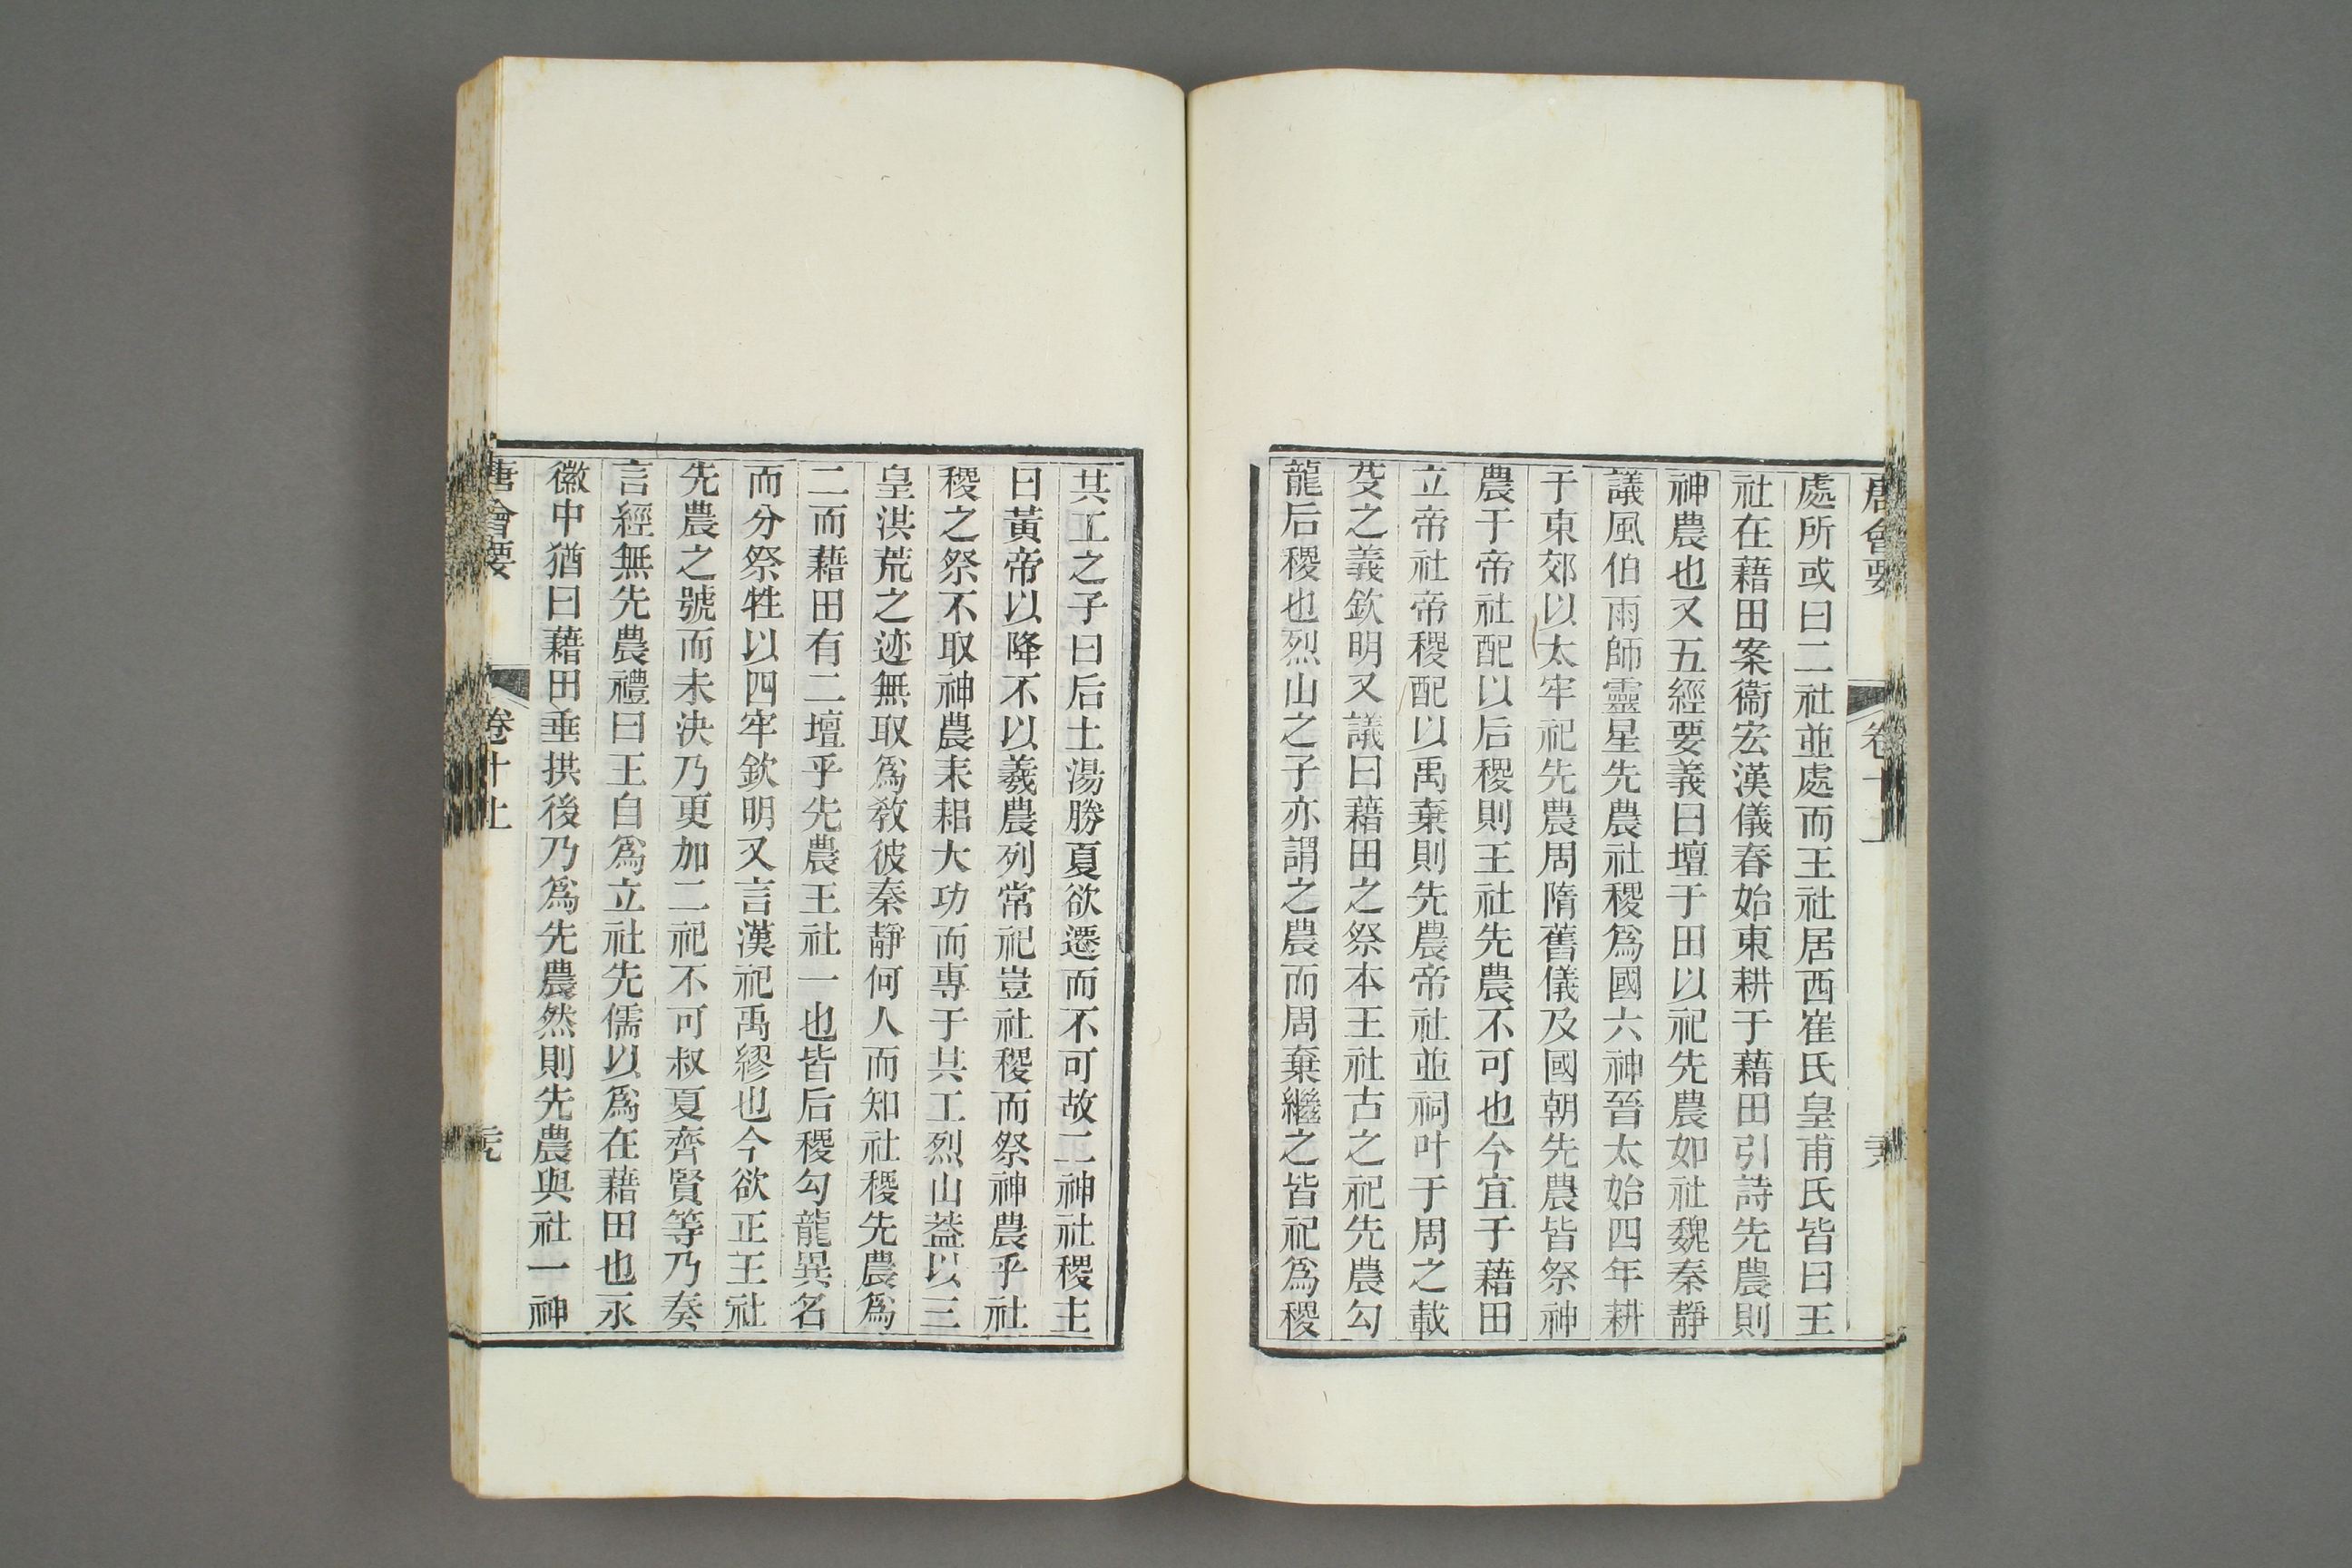 唐會要 卷十上
處所或曰二社並處而王社居西崔氏皇甫氏皆曰王
社在藉田案衞宏漢儀春始東耕于藉田引詩先農則
神農也又五經要義曰壇于田以祀先農如社魏秦靜
議風伯雨師靈星先農社稷爲國六神晉太始四年耕
于東郊以太牢祀先農周隋舊儀及國朝先農皆祭神
農于帝社配以后稷則王社先農不可也今宜于藉田
立帝社帝稷配以禹棄則先農帝社並祠叶于周之載
芟之義欽明又議曰藉田之祭本王社古之祀先農勾
龍后稷也烈山之子亦謂之農而周棄繼之皆祀爲稷
共工之子曰后土湯勝夏欲遷而不可故二神社稷主
曰黃帝以降不以羲農列常祀豈社稷而祭神農乎社
稷之祭不取神農耒耜大功而專于共工烈山蓋以三
皇洪荒之迹無取爲敎彼秦靜何人而知社稷先農爲
二而藉田有二壇乎先農王社一也皆后稷勾龍異名
而分祭牲以四牢欽明又言漢祀禹繆也今欲正王社
先農之號而未決乃更加二祀不可叔夏齊賢等乃奏
言經無先農禮曰王自爲立社先儒以爲在藉田也永
徽中猶曰藉田垂拱後乃爲先農然則先農與社一神
唐會要 卷十上